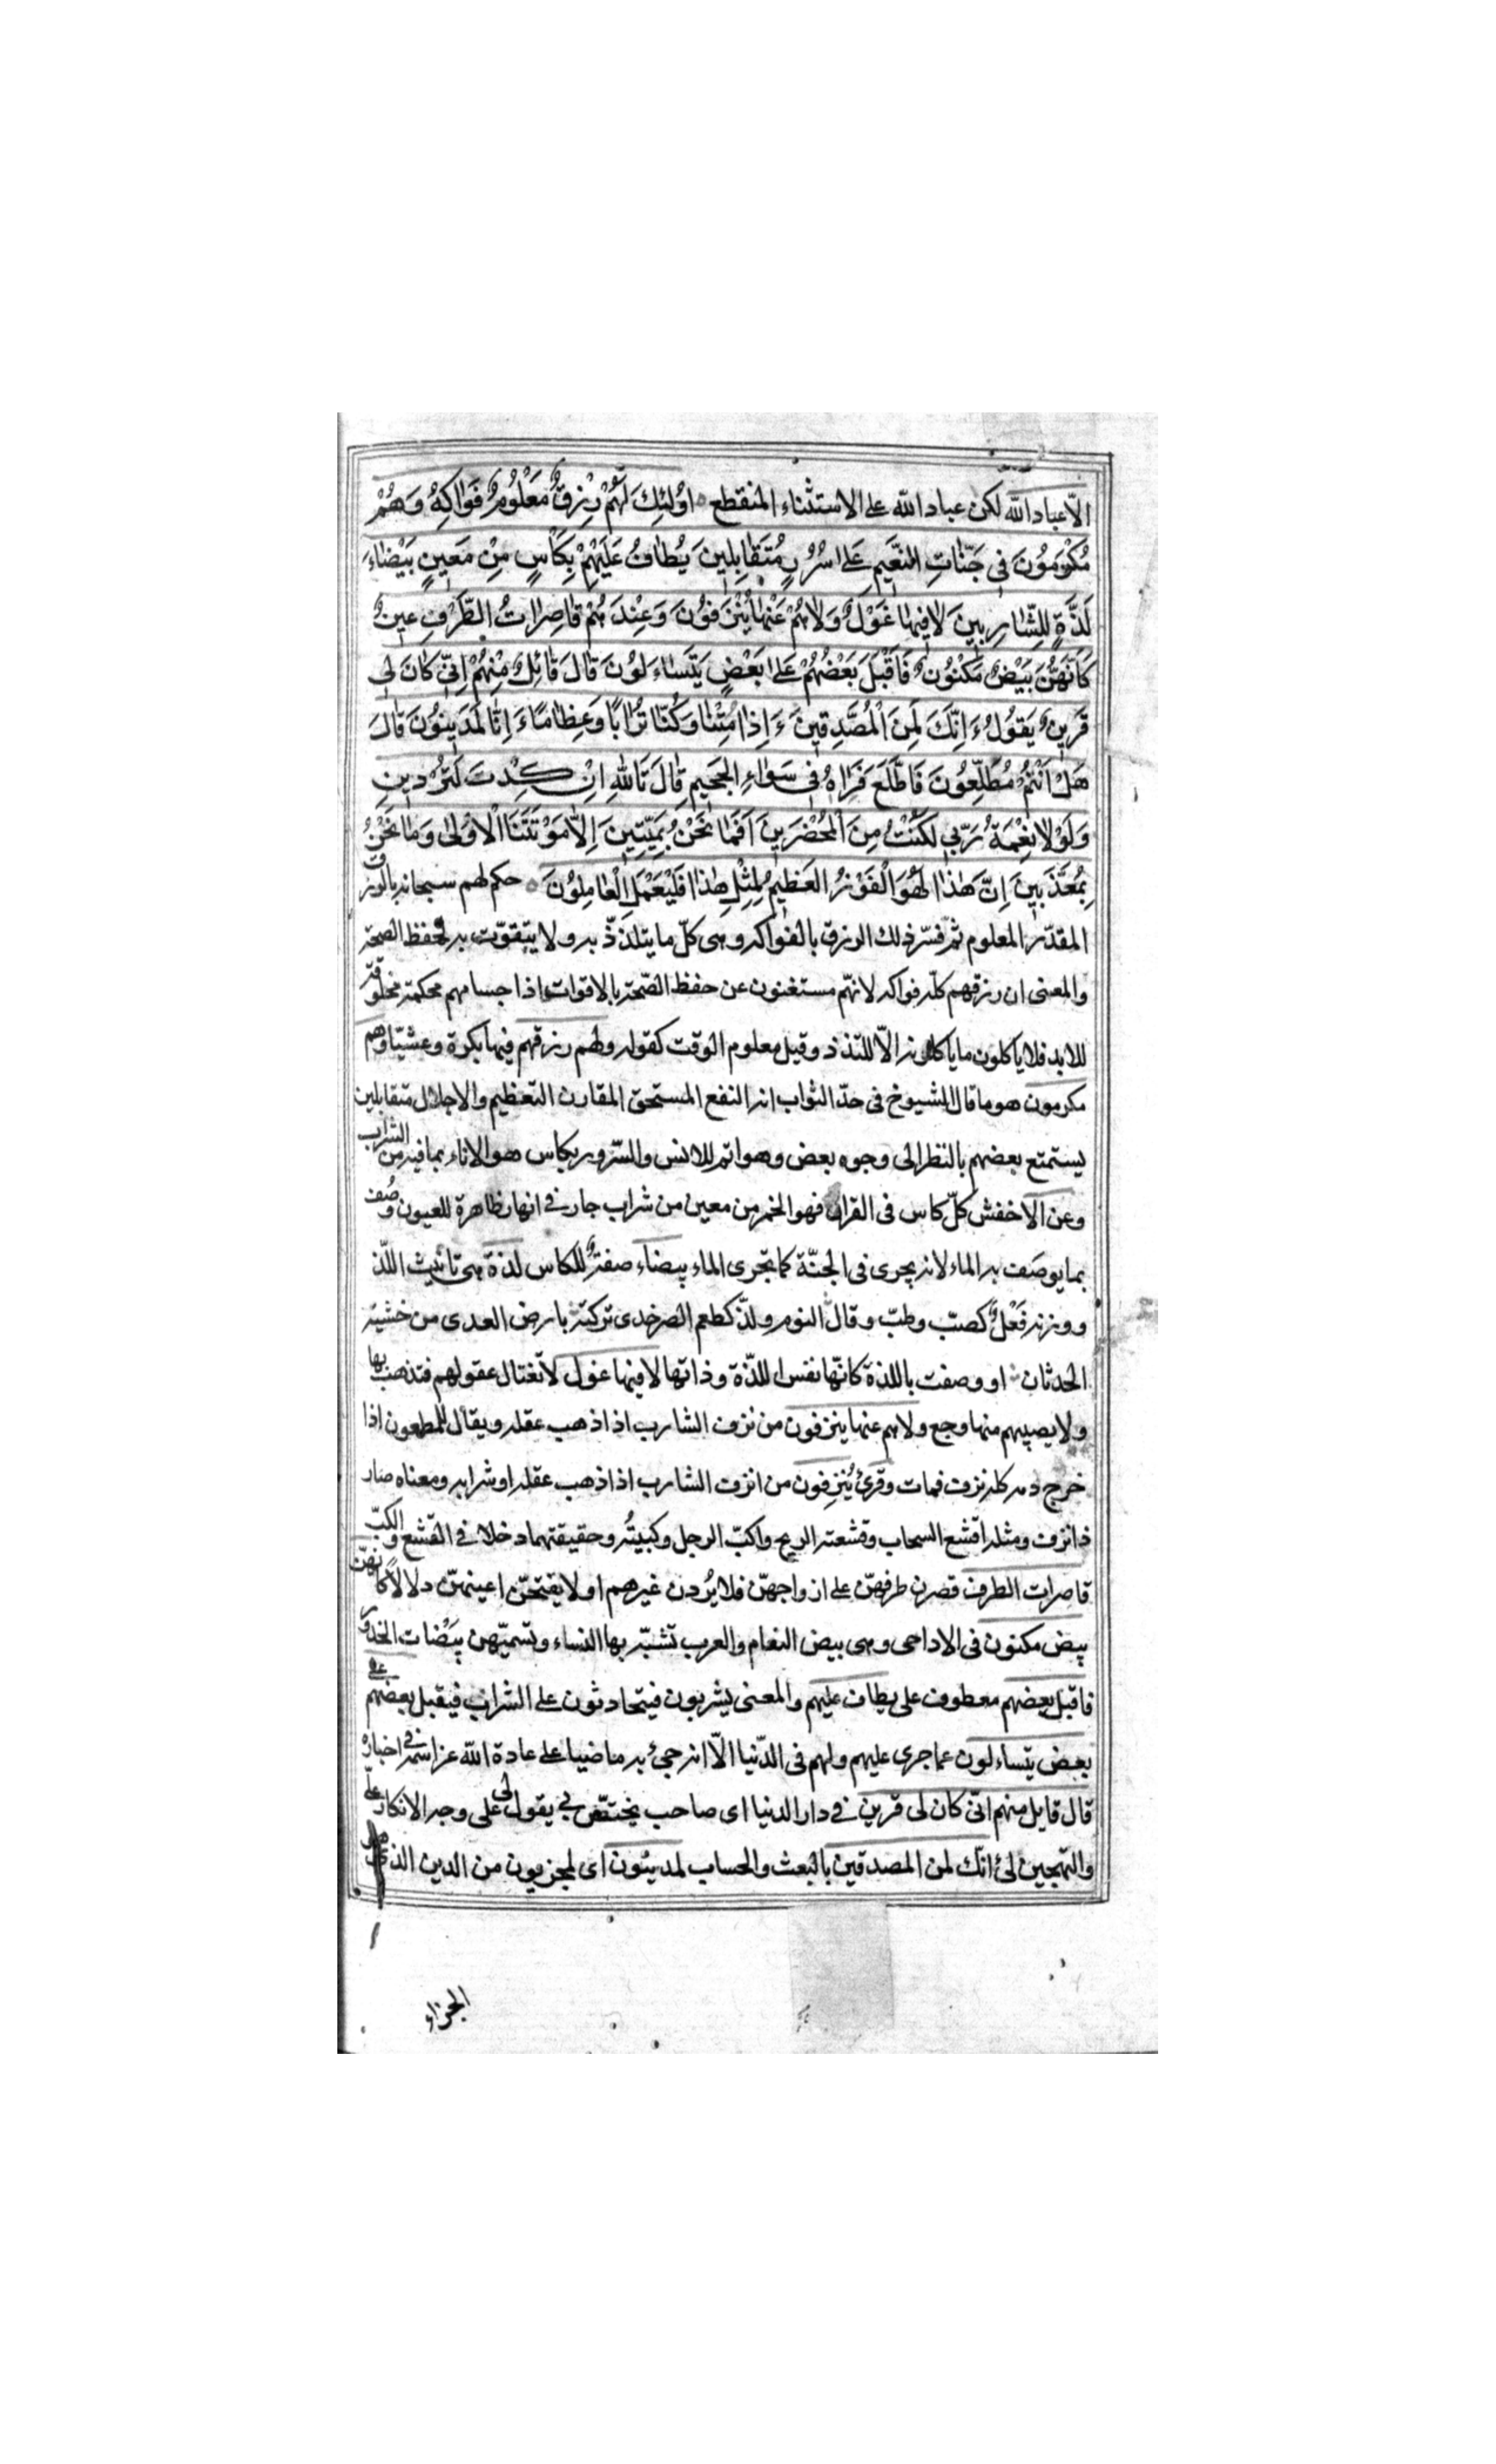 الّا عباد الله لكن عباد الله على الاستثناء المنقطع اُولٰئِكَ لَهُمْ رِزْقٌ مَعْلُومٌ فَوٰاكِهُ وَهُمْ
مُكْرَمُونَ فى جَنّٰاتِ النَّعيمِ عَلىٰ سُرُرٍ مُتَقٰابِلينَ يُطٰافُ عَلَيْهِمْ بِكَأْسٍ مِنْ مَعينٍ بَيْضٰاءَ
لَذَّةٍ لِلشّٰارِبينَ لٰا فيهٰا غَوْلٌ وَلٰا هُمْ عَنْهٰا يُنْزَفُونَ وَعِنْدَهُمْ قٰاصِرٰاتُ الطَّرْفِ عينٌ
كَاَنَّهُنَّ بَيْضٌ مَكْنُونٌ فَاَقْبَلَ بَعْضُهُمْ عَلىٰ بَعْضٍ يَتَسٰاءَلُونَ قٰالَ قٰائِلٌ مِنْهُمْ اِنّى كٰانَ لى
قَرينٌ يَقُولُ ءَاِنَّكَ لَمِنَ الْمُصَدِّقينَ ءَاِذٰا مِتْنٰا وَكُنّٰا تُرٰابًا وَعِظٰامًا ءَاِنّٰا لَمَدينُونَ قٰالَ
هَلْ اَنْتُمْ مُطَّلِعُونَ فَاطَّلَعَ فَرَاٰهُ فى سَوٰاءِ الجَحيمِ قٰالَ تَاللهِ اِنْ كِدْتَ لَتُرْدينِ
وَلَوْلٰا نِعْمَةُ رَبّى لَكُنْتُ مِنَ الْمُحْضَرينَ اَفَمٰا نَحْنُ بِمَيِّتينَ اِلّٰا مَوْتَتَنَا الْاُولىٰ وَمٰا نَحْنُ
بِمُعَذَّبينَ اِنَّ هٰذٰا لَهُوَ الْفَوْزُ العَظيمُ لِمِثْلِ هٰذٰا فَلْيَعْمَلِ الْعٰامِلُونَ حكم لهم سبحانه بالرزق
المقدّر المعلوم ثمّ فسّر ذلك الرزق بالفواكه وهى كلّ ما يتلذّذ به ولا يتقوّت به لحفظ الصحّة
والمعنى ان رزقهم كلّه فواكه لانهّم مستغنون عن حفظ الصّحة بالاقوات اذ اجسامهم محكمة مخلوقة
للابد فلا يأكلون ما يأكلونه الّا للتذذ وقيل معلوم الوقت كقوله ولهم رزقهم فيها بكرة وعشيّا وهم
مكرمون هو ما قال الشيوخ فى حدّ الثواب انه النفع المستحق المقارن التعظيم والاجلال متقابلين
يستمتع بعضهم بالنظر الى وجوه بعض وهو اتم للانس والسّرور بكاس هو الاناء بما فيه من الشراب
وعن الاخفش كلّ كاس فى القران فهو الخمر من معين من شراب جار فى انهار ظاهرة للعيون وُصف
بما يوصَف به الماء لانه يجرى فى الجنّة كما تجرى الماء بيضاء صفةٌ للكاس لذة هى تانيث اللّذ
ووزنه فَعْلٌ كصبّ وطبّ وقال النوم ولذّ كطعم الصرخدى تركته بارض العدى من خشية
الحدثان او وصفت باللذة كانّها نفس اللذّة وذاتها لا فيها غول لا تغتال عقولهم فتذهب بها
ولا يصيبهم منها وجع ولا هم عنها ينزفون من نزف الشارب اذا ذهب عقله ويقال للمطعون اذا
خرج دمه كله نزف فمات وقرئ يُنْزِفون من انزف الشارب اذا ذهب عقله او شرابه ومعناه صار
ذا نزف ومثله اقشع السحاب وقشعته الريح واكبّ الرجل وكببتُه وحقيقتهما دخلا فى القشع والكبّ
قاصرات الطرف قصرن طرفهنّ على ازواجهنّ فلا يُردن غيرهم او لا يفتحنّ اعينهنّ دلالاً كانهنّ
بيض مكنون فى الاداحى وهى بيض النعام والعرب تشبّه بها النساء وتسمّيهن بيَضات الخدور
فاقبل بعضهم معطوف على يطاف عليهم والمعنى يشربون فيتحادثون على الشراب فيقبل بعضهم على
بعض يتساءلون عما جرى عليهم ولهم فى الدّنيا الّا انه جئ به ماضيا على عادة الله عزّ اسمه فى اخباره
قال قايل منهم انّى كان لى قرين فى دار الدنيا اى صاحب يختصّ بى يقول لى على وجه الانكار علىّ
والتهجين لى ءانّك لمن المصدقين بالبعث والحساب لمدينون اى لمجزيون من الدين الذى هو
الجزاء